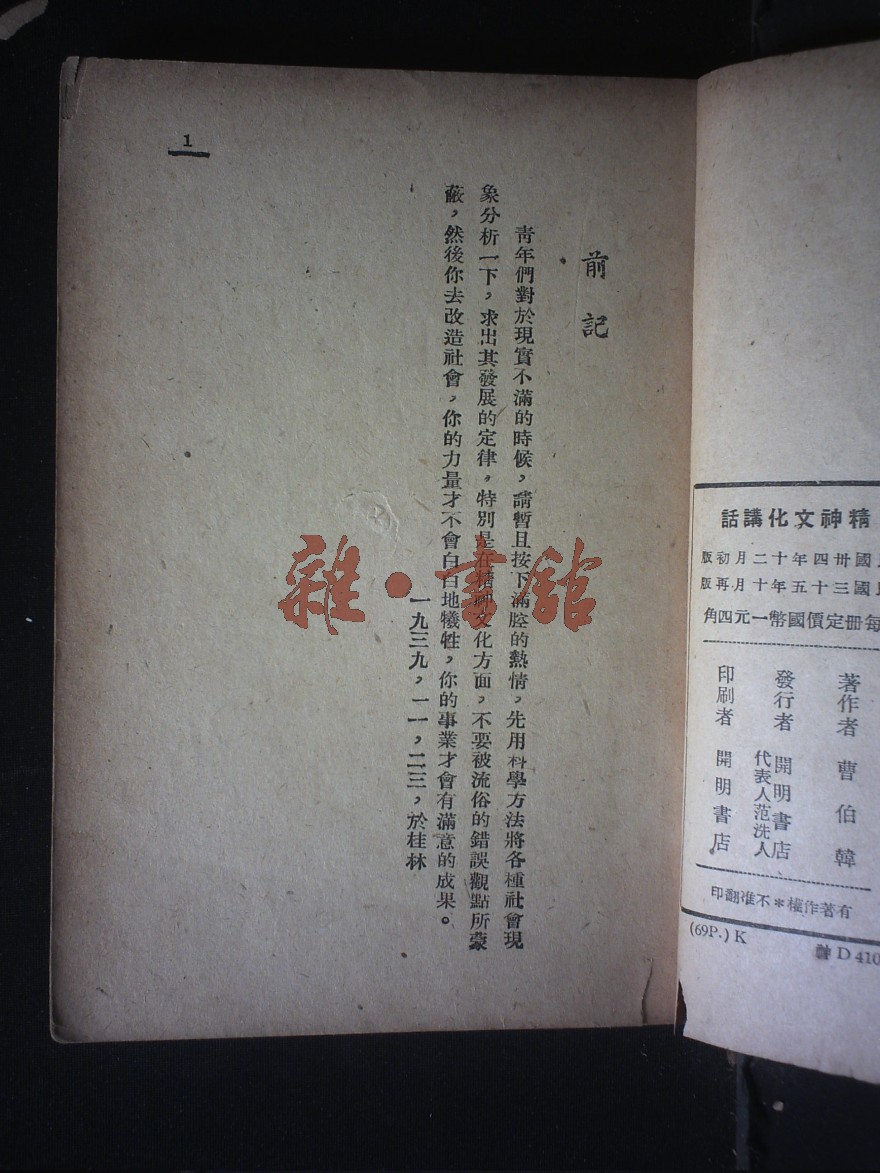 精神文化講話
國卅四年十二月初版
國三十五年十月再版
每冊定價國幣一元四角
著作者 曹伯韓
發行者 開明書店
代表人范洗人
印刷者 開明書店
有著作權＊不准翻印
(69P.) K
D 410
前記
青年們對於現實不滿的時候，請暫且按下滿腔的熱情，先用科學方法將各種社會現
象分析一下，求出其發展的定律。特別是在精神文化方面，不要被流俗的錯誤觀點所蒙
蔽，然後你去改造社會，你的力量才不會白白地犧牲，你的事業才會有滿意的成果。
一九三九，一一，二三，於桂林
1
雜·書館